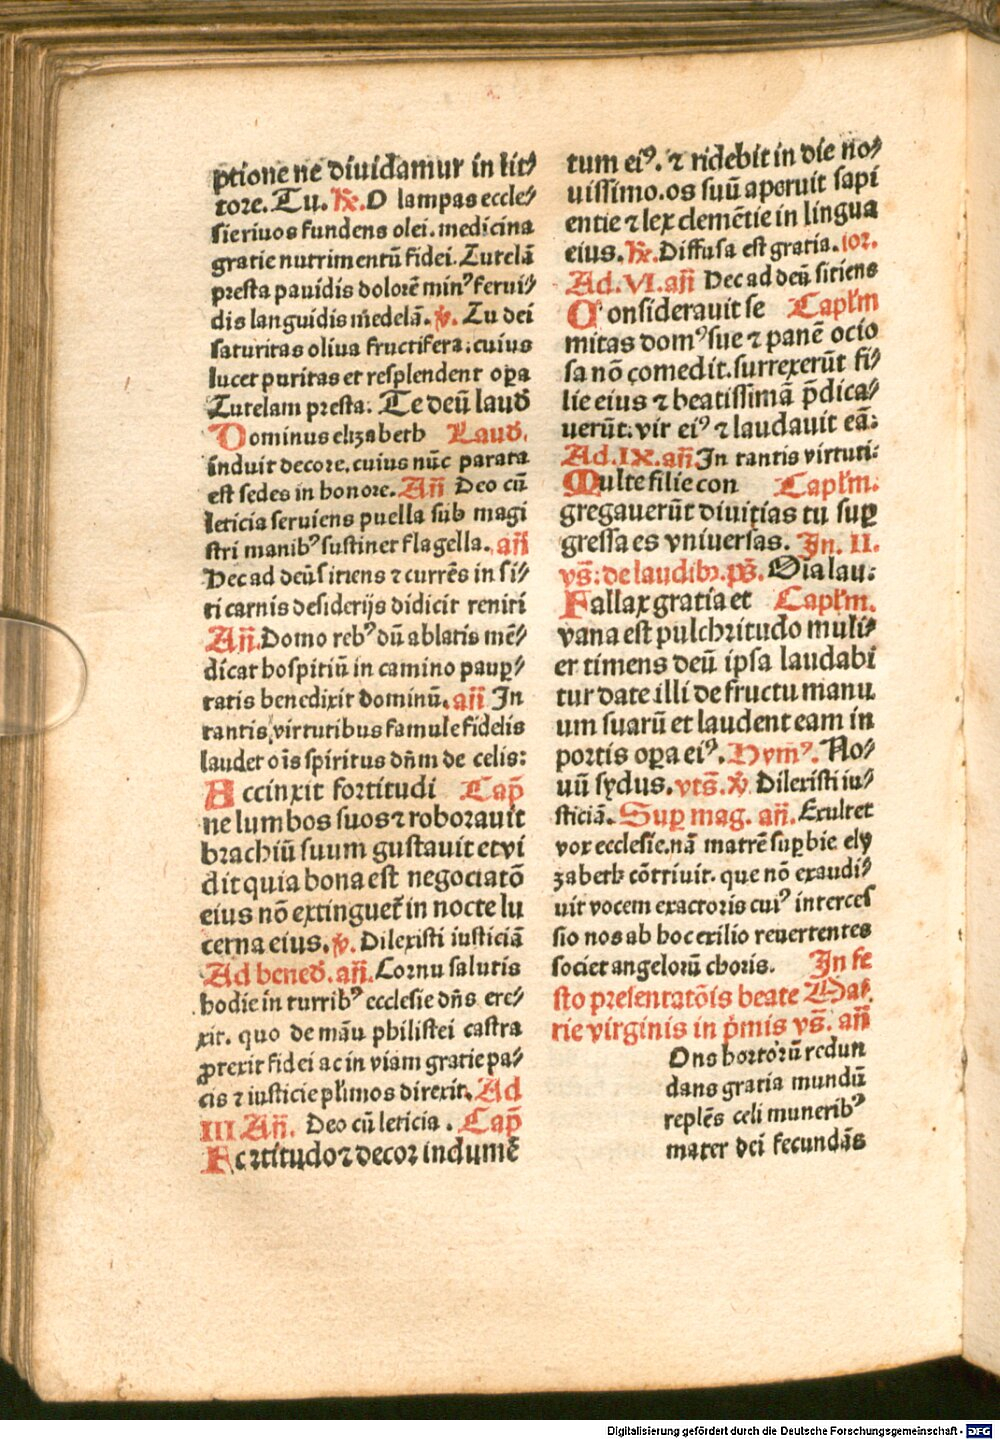 ptione ne diuidamur in lit⸗
tore. Tu. R̃. O lampas eccle⸗
sie riuos fundens olei. medicina
gratie nutrimentū fidei. Tutelā
presta pauidis dolorē minꝰ ferui⸗
dis languidis medelā. ꝟ. Tu dei
saturitas oliua fructifera. cuius
lucet puritas et resplendent oꝑa
Tutelam presta. Te deū laud̄
Dominus elyzabeth Laud̄.
induit decore. cuius nūc parata
est sedes in honore. Añ Deo cū
leticia seruiens puella sub magi
stri manibꝰ sustinet flagella. añ
Hec ad deū sitiens ⁊ currēs in si⸗
ti carnis desiderijs didicit reniti
Añ. Domo rebꝰ dū ablatis mē⸗
dicat hospitiū in camino pauꝑ⸗
tatis benedixit dominū. añ In
tantis virtutibus famule fidelis
laudet ois spiritus dñm de celis:
Accinxit fortitudi Cap̄
ne lumbos suos ⁊ roborauit
brachiū suum gustauit et vi
dit quia bona est negociatō
eius nō extinguet̄ in nocte lu
cerna eius. ꝟ. Dilexisti iusticiā
Ad bened̄. añ. Cornu salutis
hodie in turribꝰ ecclesie dñs ere⸗
xit. quo de manu philistei castra
ꝓtexit fidei ac in viam gratie pa⸗
cis ⁊ iusticie pl̄imos direxit. Ad
III Añ. Deo cū leticia. Cap̄
Fortitudo ⁊ decor indumē
tum eiꝰ. ⁊ ridebit in die no⸗
uissimo. os suū aperuit sapi
entie ⁊ lex clemētie in lingua
eius. R̃. Diffusa est gratia. ior.
Ad. VI. añ Hec ad deū sitiens
Considerauit se Capl̄m
mitas domꝰ sue ⁊ panē ocio
sa nō comedit. surrexerūt fi⸗
lie eius ⁊ beatissimā p̄dica⸗
uerūt. vir eiꝰ ⁊ laudauit eā:
Ad. IX. añ. In tantis virtuti:
Multe filie con Capl̄m.
gregauerūt diuitias tu suꝑ
gressa es vniuersas. In. II.
vs̄: de laudibꝫ. ps̄. Dia lau:
Fallax gratia et Capl̄m.
vana est pulchritudo muli⸗
er timens deū ipsa laudabi
tur date illi de fructu manu
um suarū et laudent eam in
portis oꝑa eiꝰ. Hym̄ꝰ. No⸗
uū sydus. vts̄. ꝟ Dilexisti iu⸗
sticiā. Suꝑ mag. añ. Exultet
vox ecclesie. nā matrē suꝑbie ely
zabeth cōtriuit. que nō exaudi⸗
uit vocem exactoris cuiꝰ interces
sio nos ab hoc exilio reuertentes
societ angelorū choris. In fe
sto presentatōis beate Ma⸗
rie virginis in p̄mis vs̄. añ
Ons hortorū redun
dans gratia mundū
replēs celi muneribꝰ
mater dei fecundās
Digitalisierung gefördert durch die Deutsche Forschungsgemeinschaft - DFG